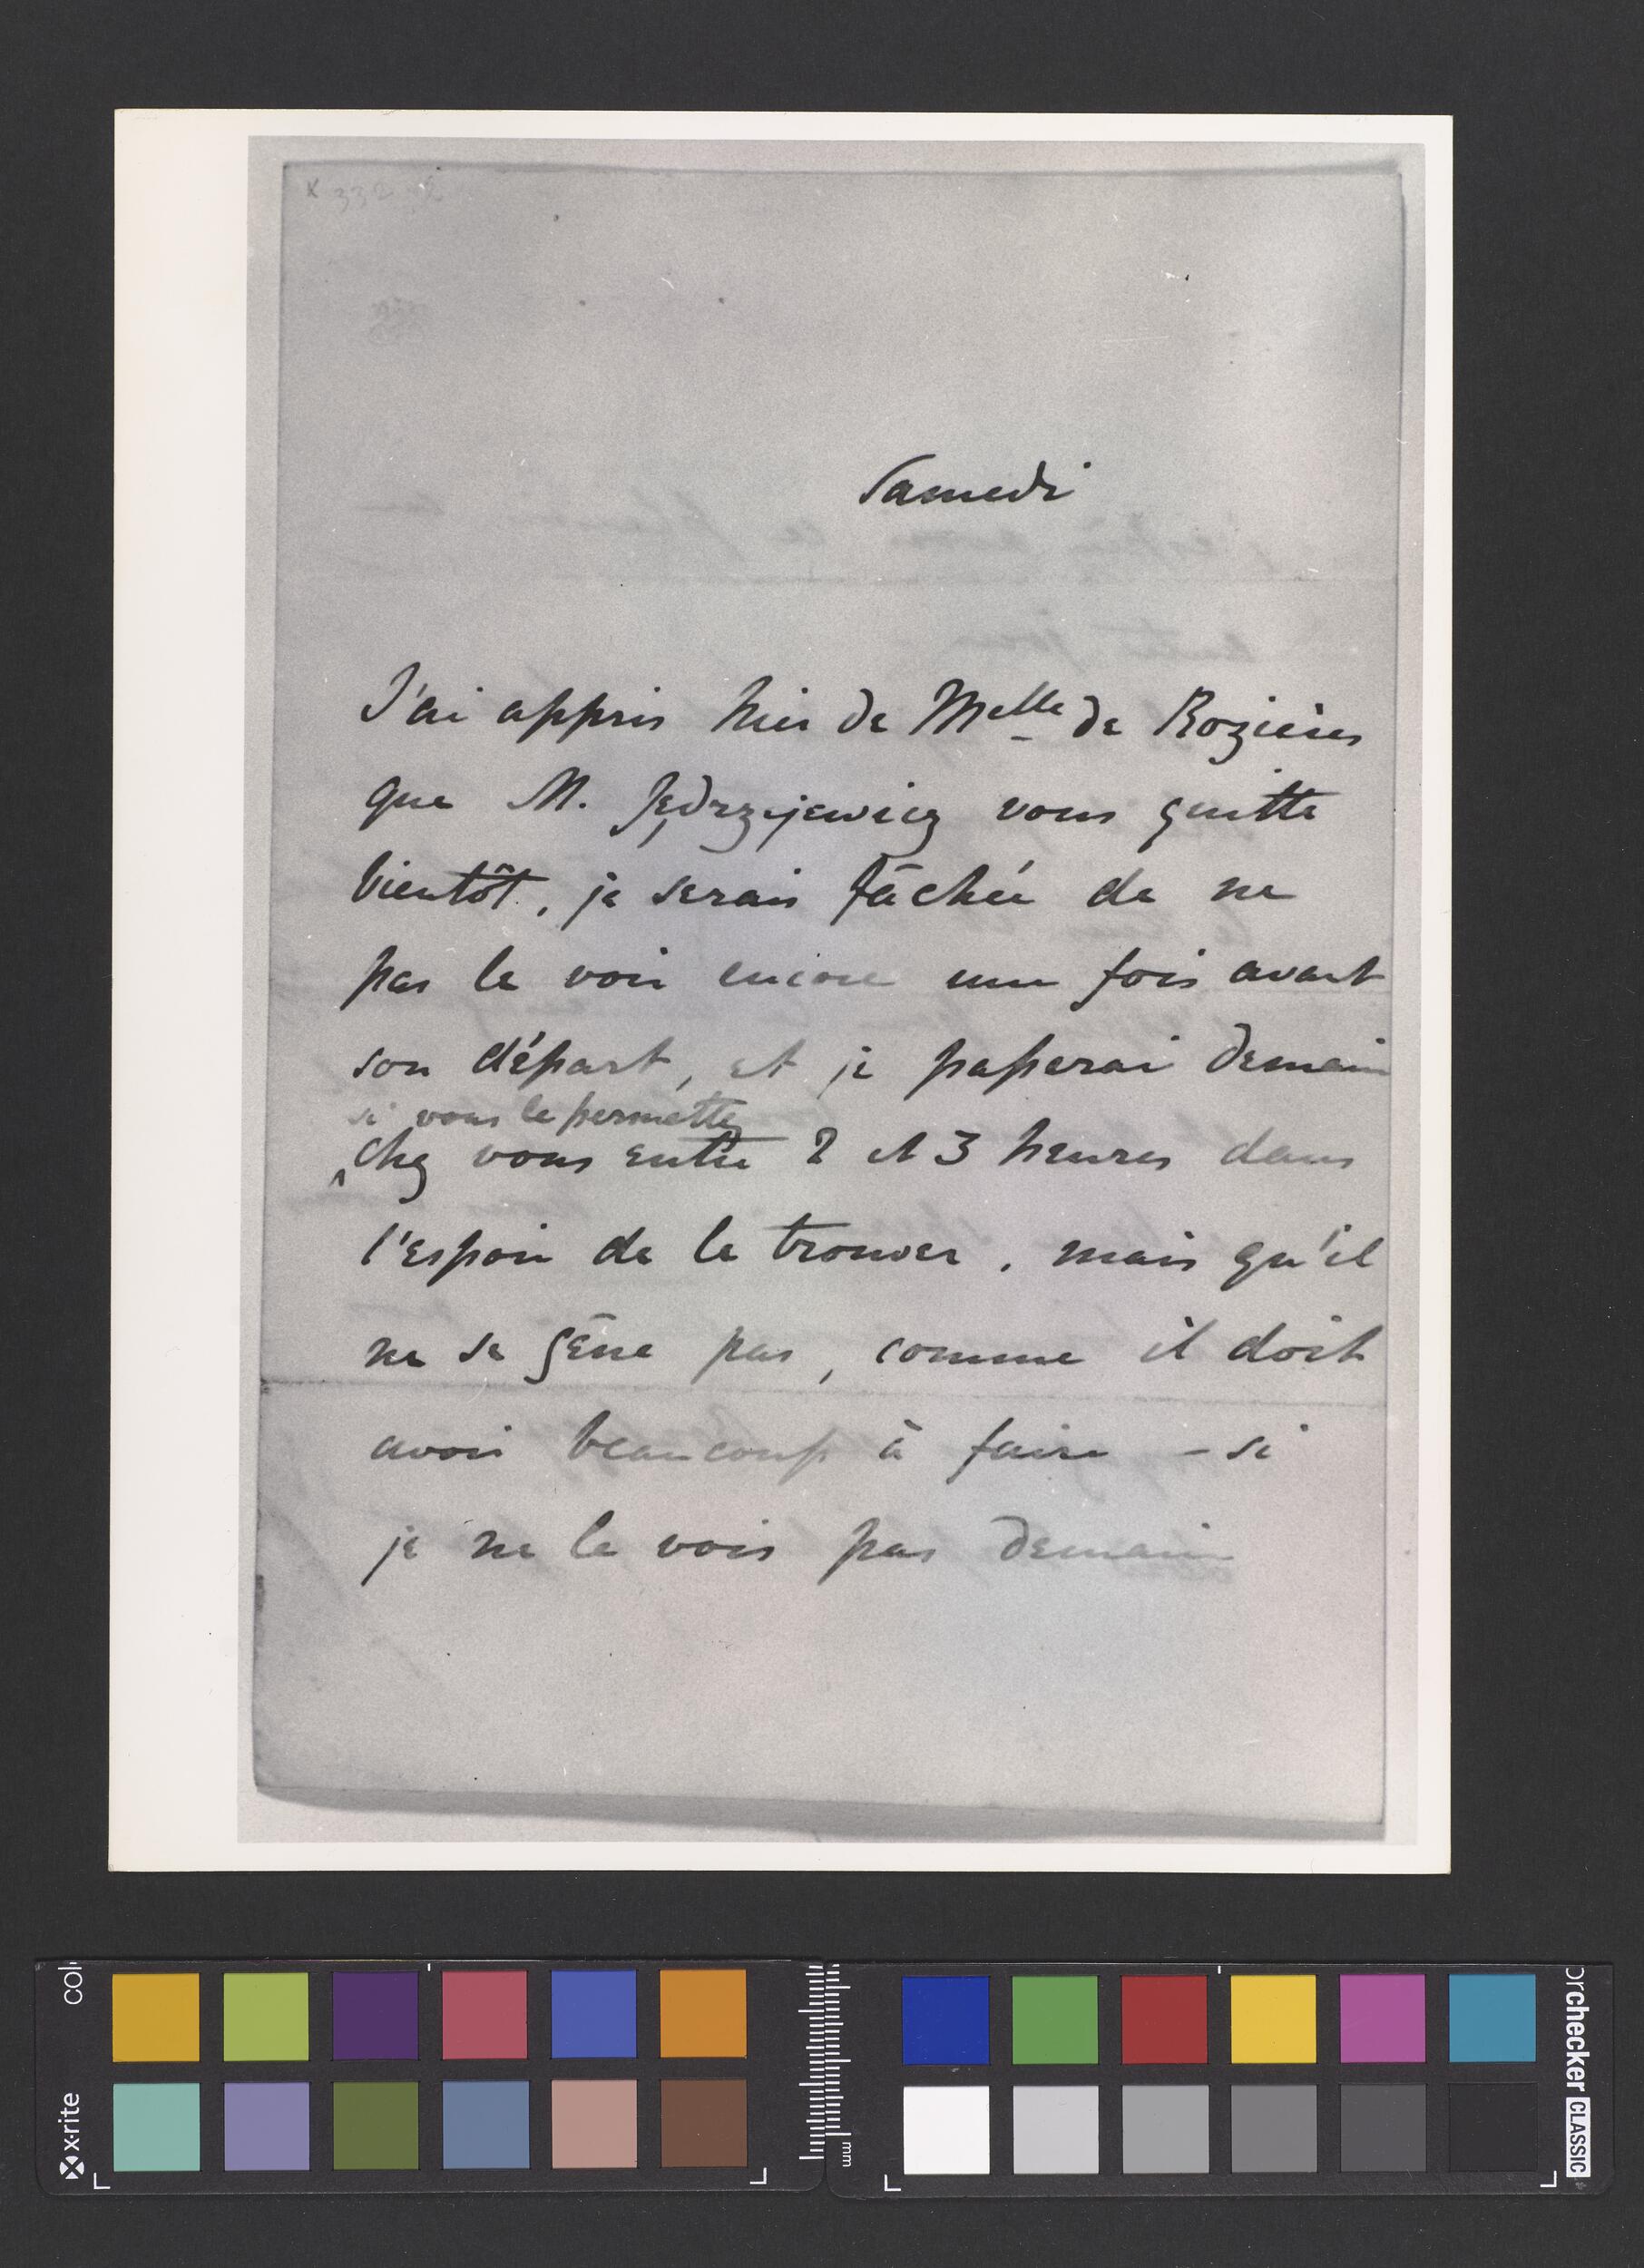 K 332
Samedi
J'ai appris hier de Melle de Rozières
que M. Jędrzejewicz vous quitte
bientôt, je serais fâchée de ne
pas le voir encore une fois avant
son départ, et je passerai demain
si vous le permettez
chez vous entre 2 et 3 heures dans
l'espoir de le trouver. mais qu'il
ne se gêne pas, comme il doit
avoir beaucoup à faire – si
je ne le vois pas demain
x-rite
mm
checker CLASSIC